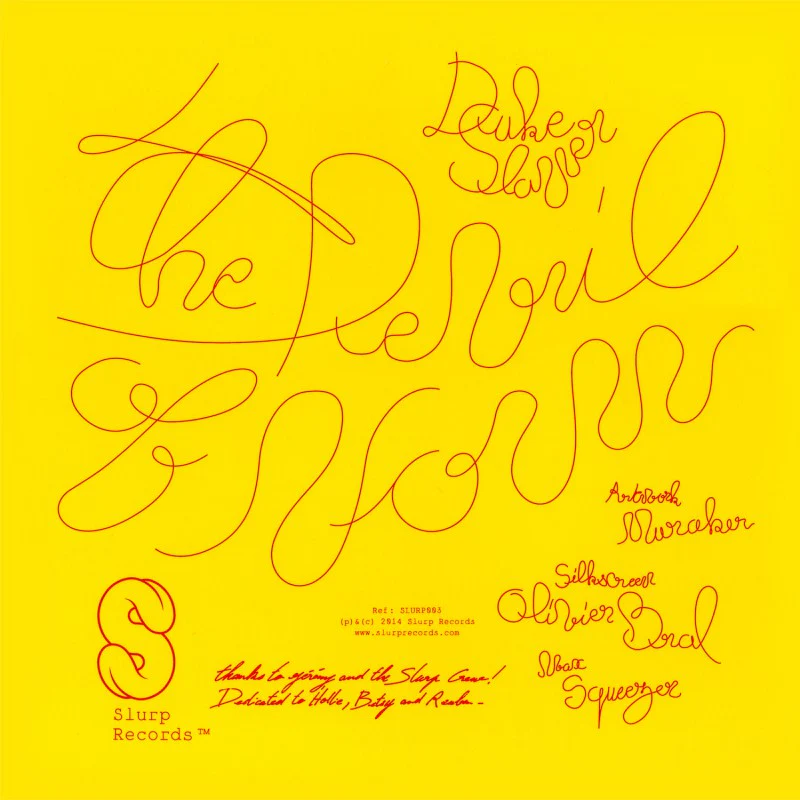 The Devil
& Norm
Artwork
Muraker
Silkscreen
Olivier Bral
Wax
Squeezer
Ref: SLURP003
(p)&(c) 2014 Slurp Records
www.slurprecords.com
thanks to Jérémy and the Slurp Crew!
Dedicated to Hollie, Betsy and Reuben -
Slurp
Records™